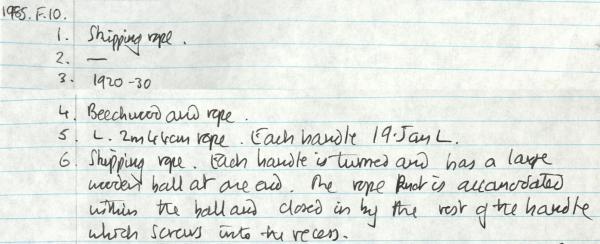 1985.F.10.
1. Skipping rope.
2. —
3. 1920-30
4. Beechwood and rope.
5. L. 2m 44cm rope. Each handle 19.5cm L.
6. Skipping rope. Each handle is turned and has a large
wooden ball at one end. The rope knot is accomodated
within the ball and closed in by the rest of the handle
which screws into the recess.